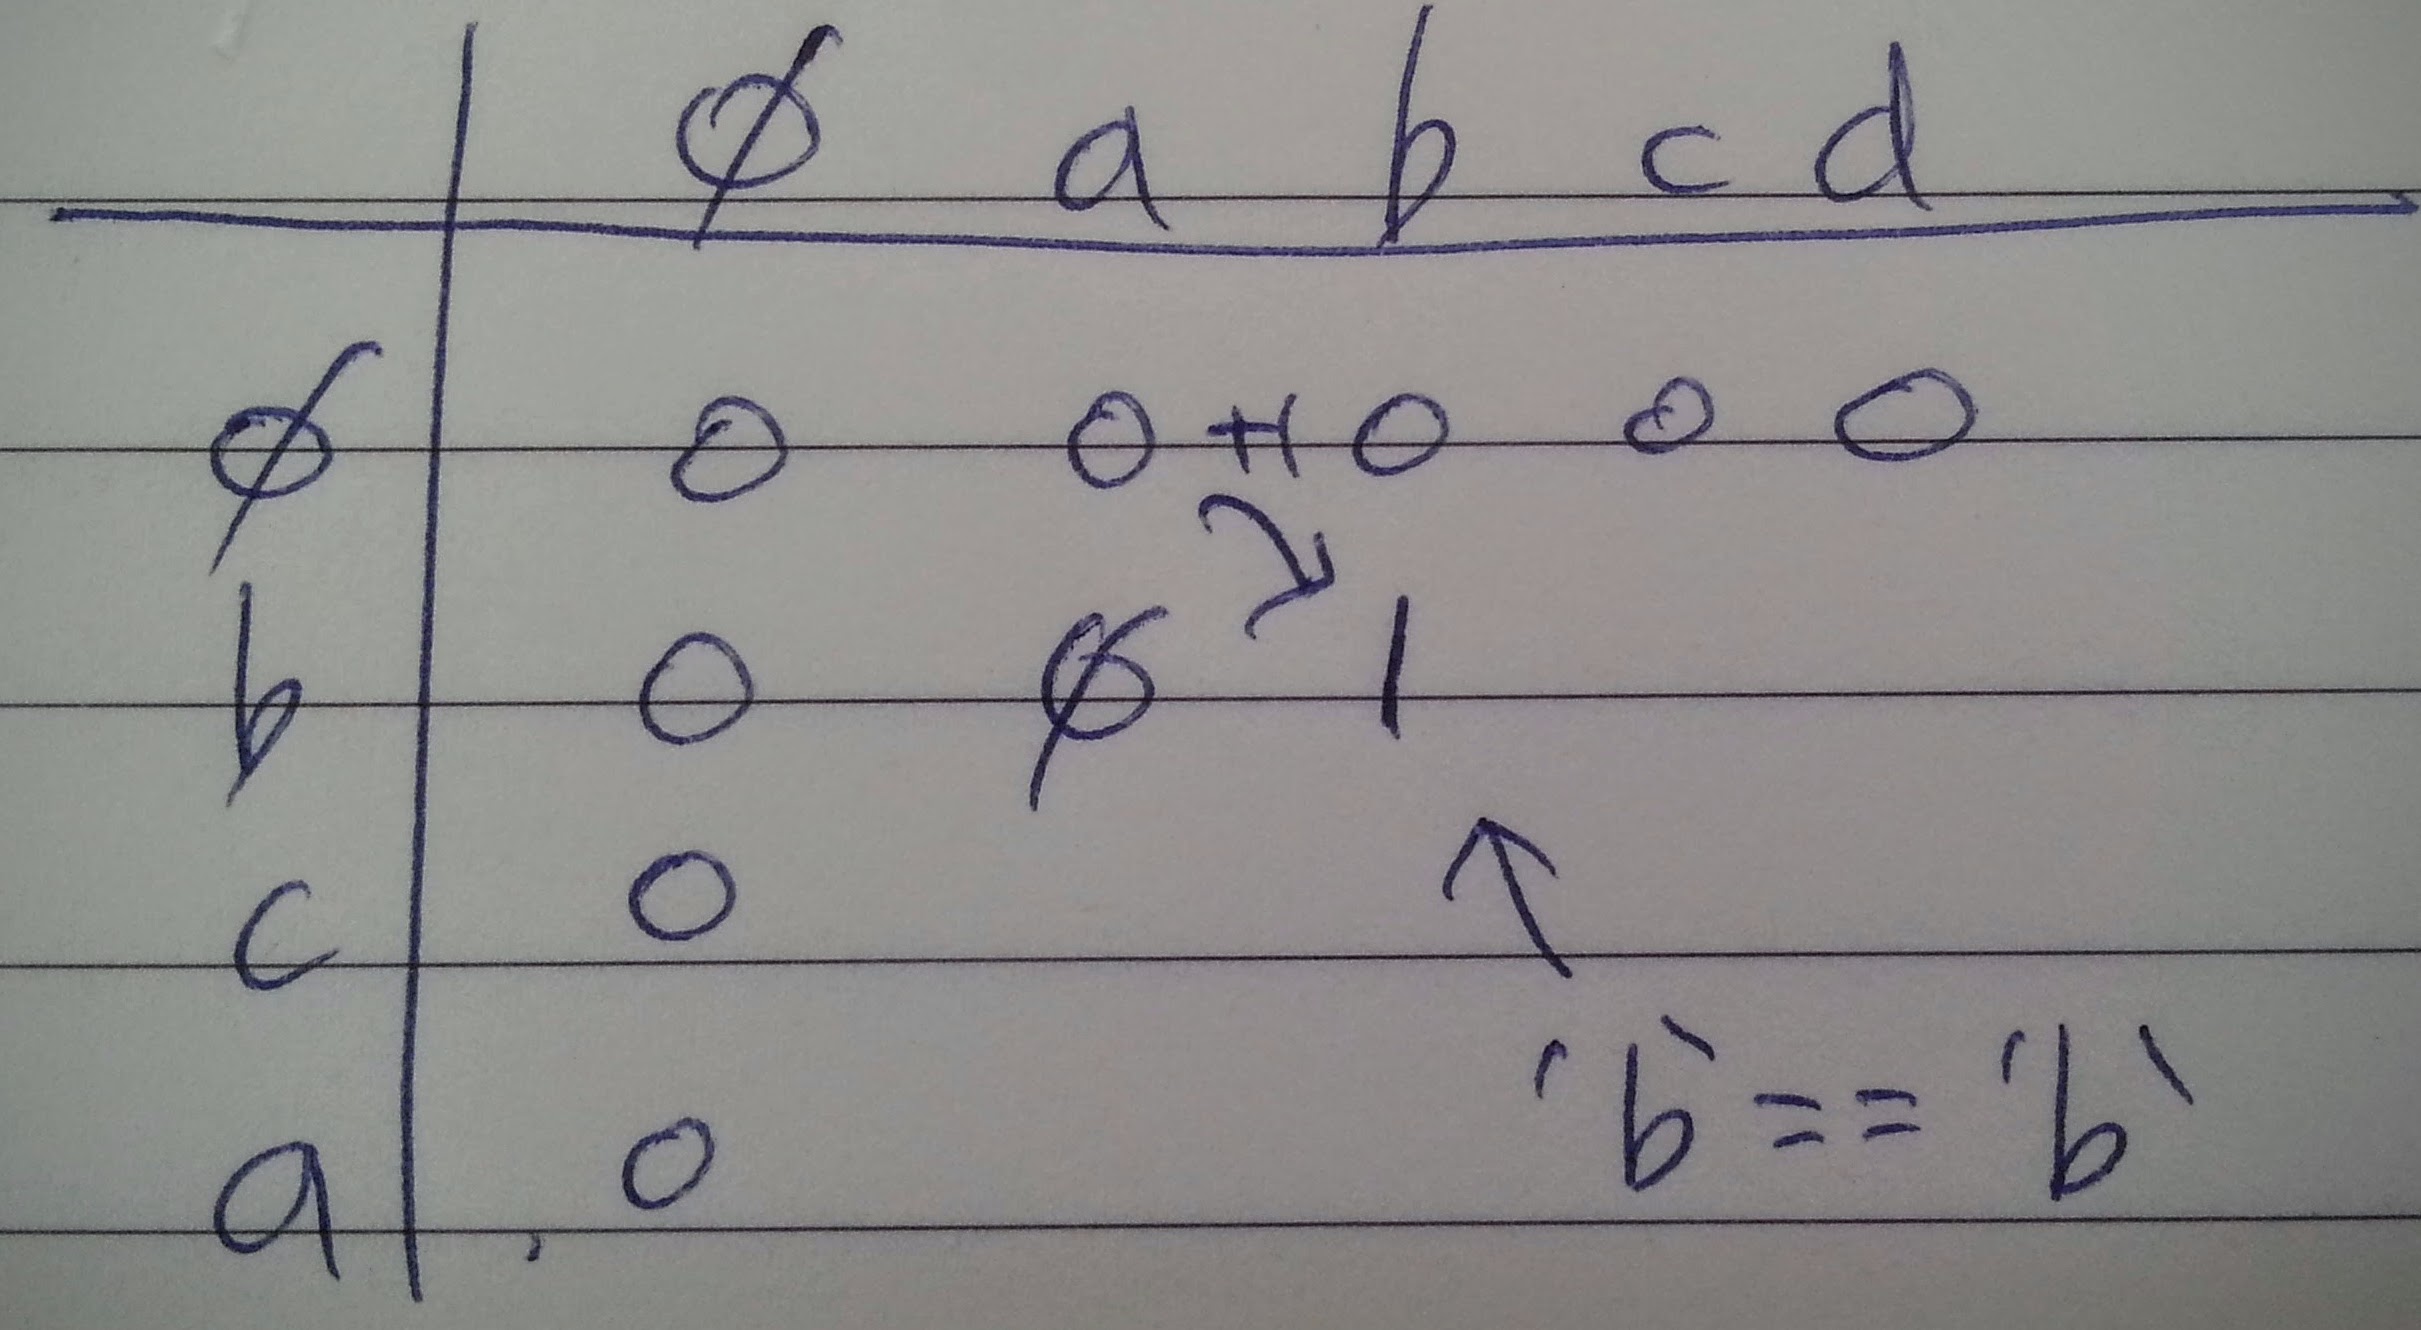 ∅ a b c d
∅ 0 0 +1 0 0 0
b 0 ∅ 1
c 0
a 0
'b' == 'b'